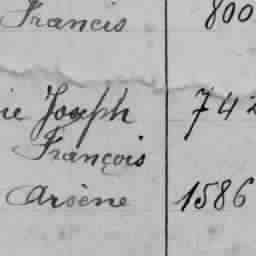 Francis 800
ie Joseph 742
François
Arsène 1586